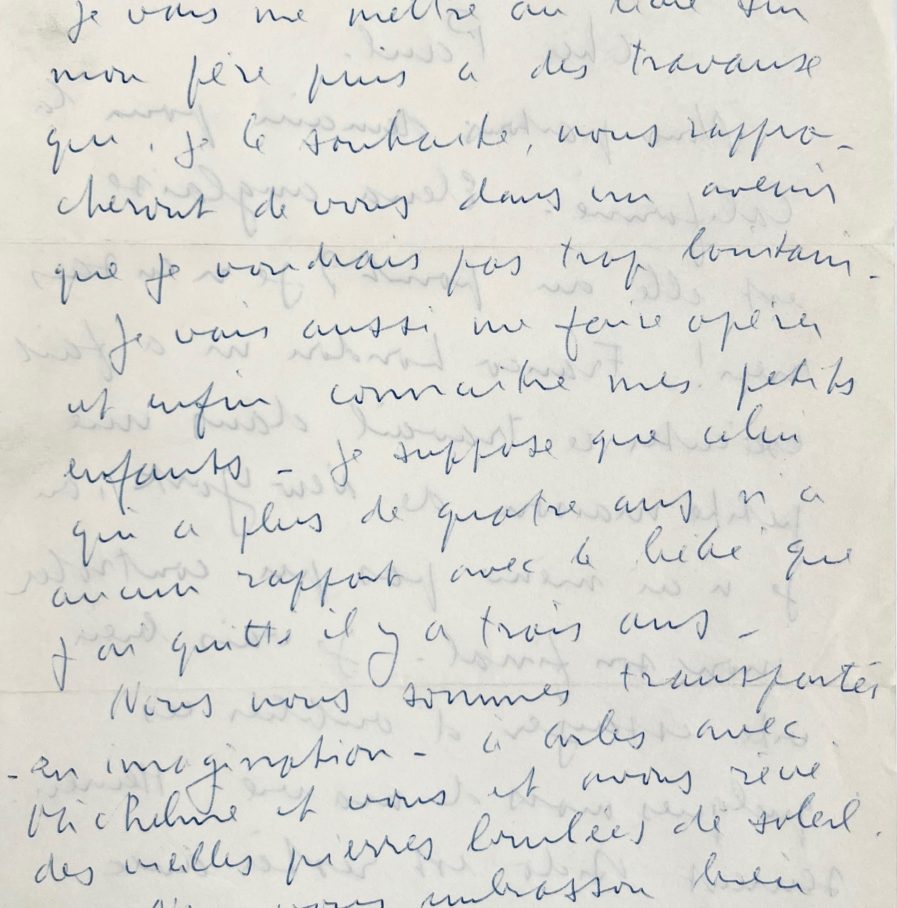 Je vais me mettre au livre sur
mon père puis à des travaux
qui, je le souhaite, nous rappro-
cheront de vous dans un avenir
que je voudrais pas trop lointain.
Je vais aussi me faire opérer
et enfin connaître mes petits
enfants - Je suppose que celui
qui a plus de quatre ans n'a
aucun rapport avec le bébé que
j'ai quitté il y a trois ans -
Nous nous sommes transportés
- en imagination - à Arles avec
Micheline et vous et avons rêvé
des vieilles pierres brulées de soleil.
Nous vous embrassons bien